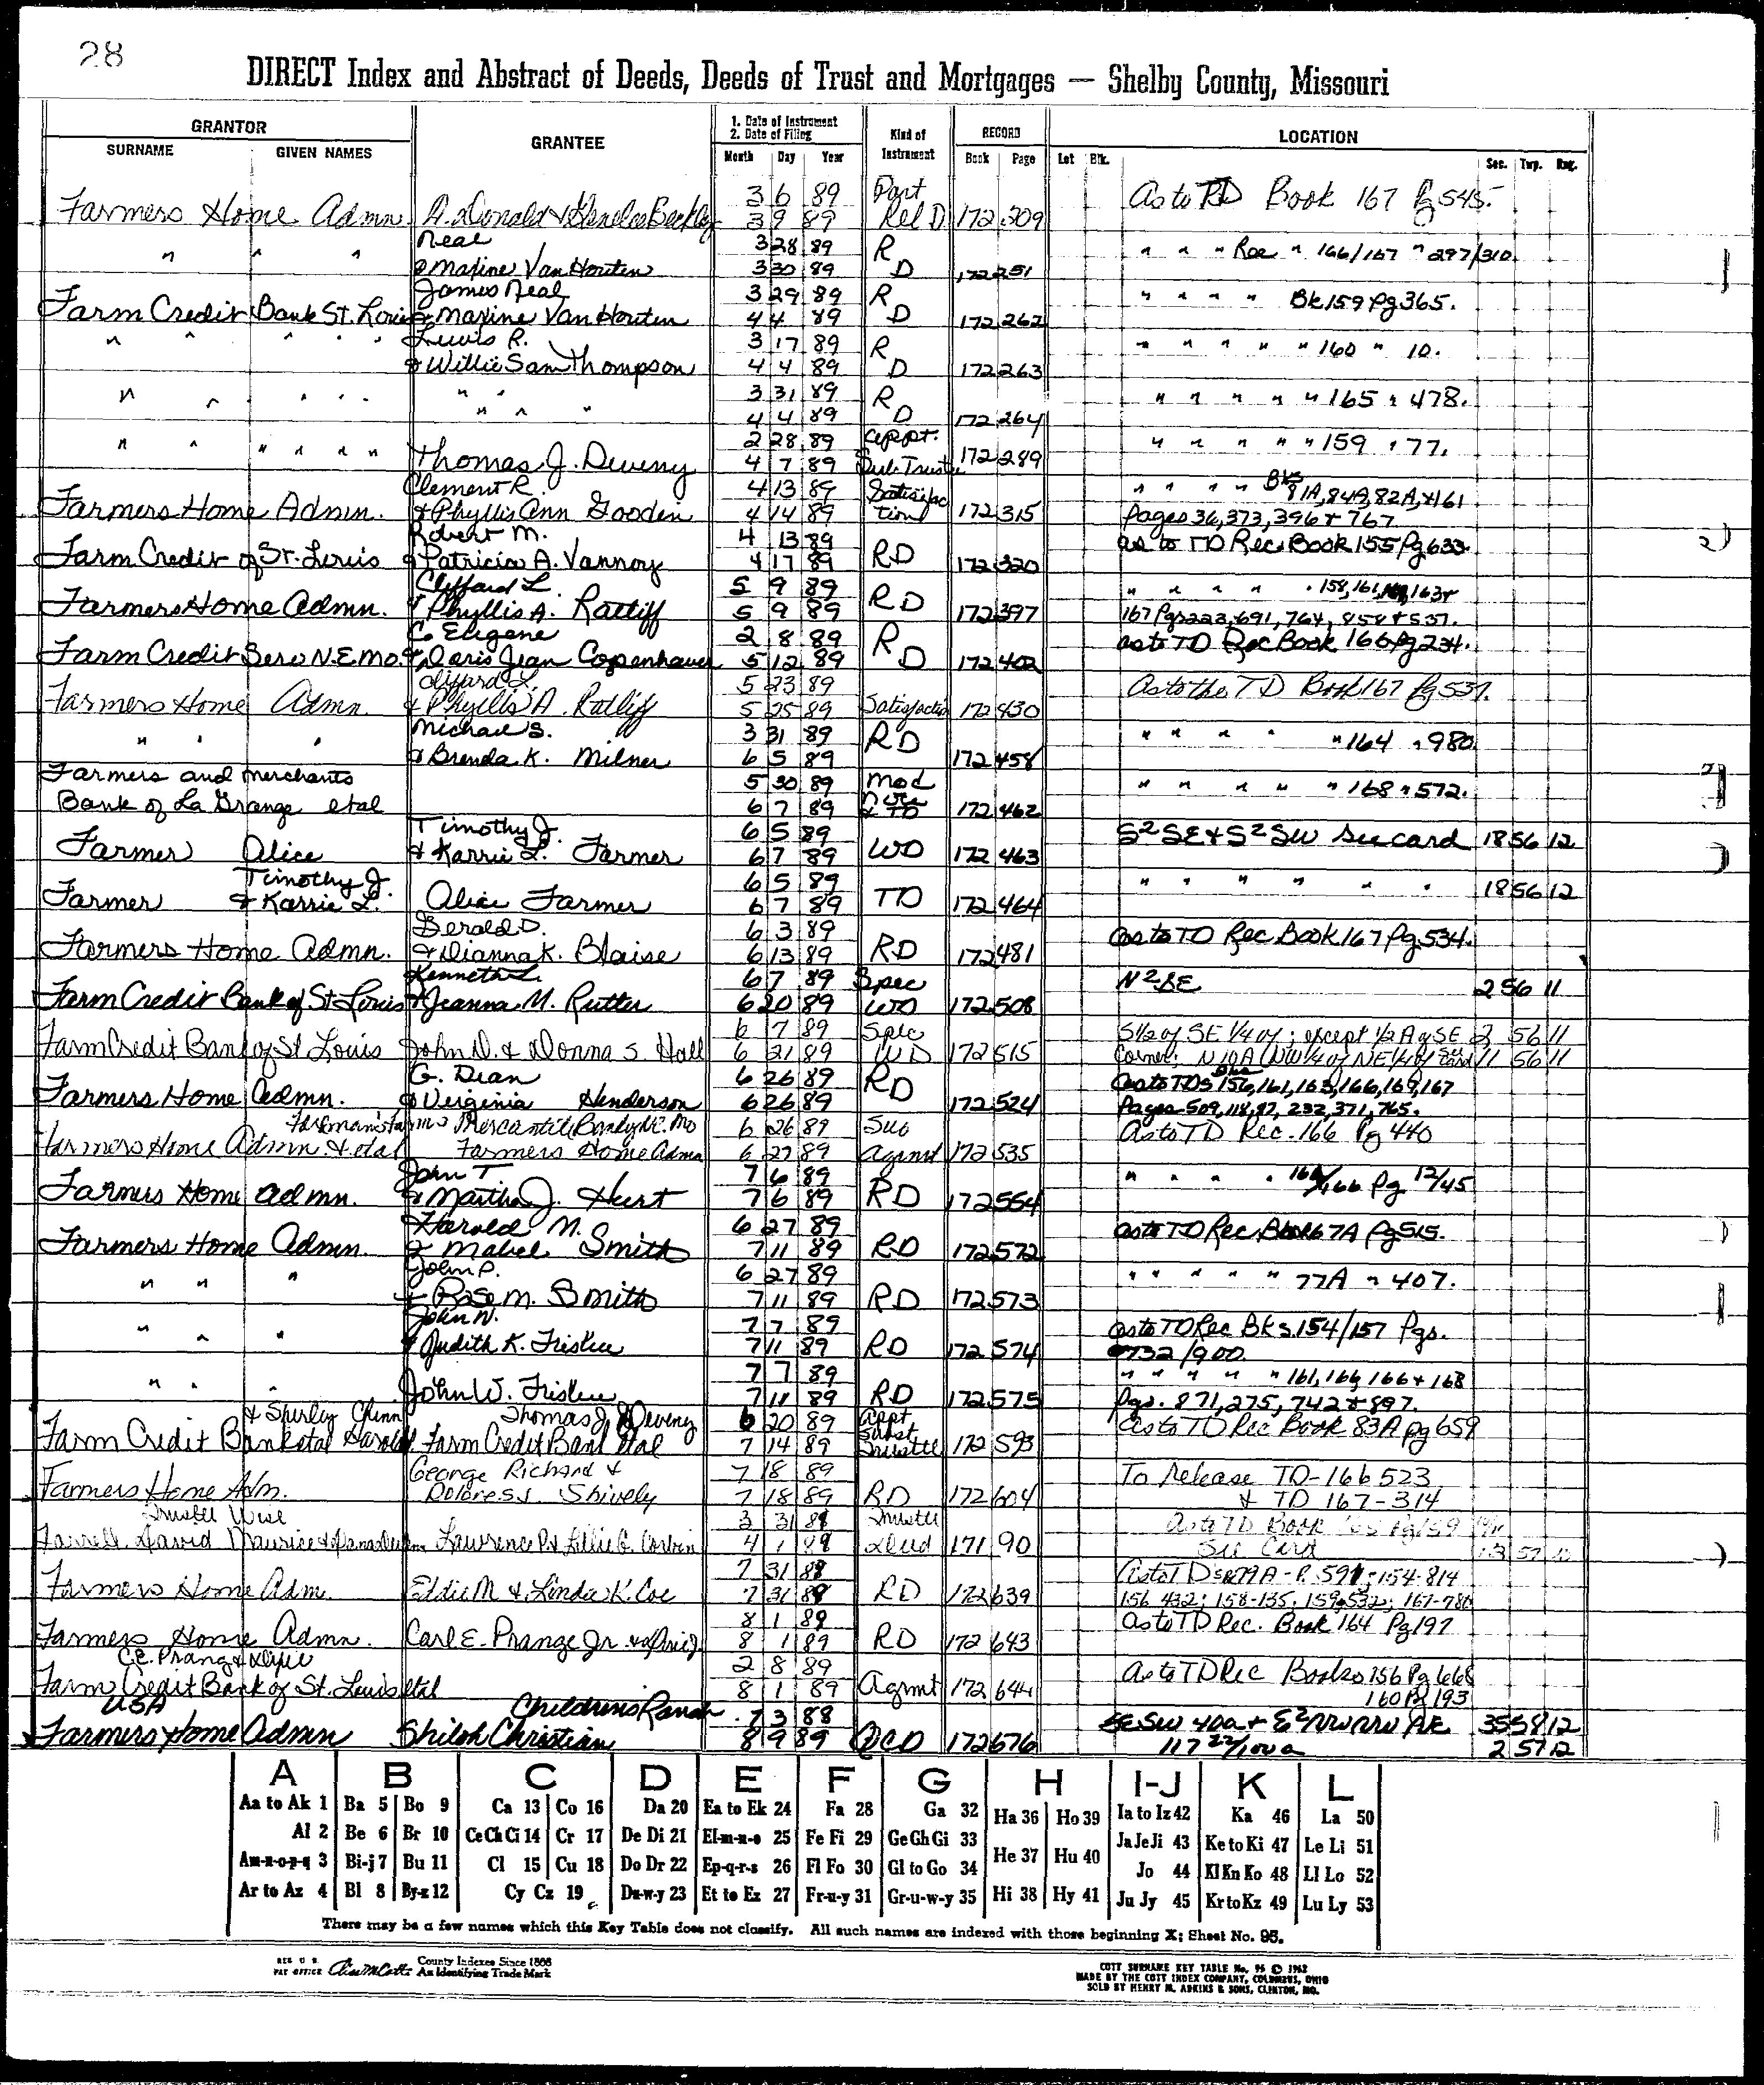 28
DIRECT Index and Abstract of Deeds, Deeds of Trust and Mortgages — Shelby County, Missouri
GRANTOR GRANTEE 1. Date of Instrument 2. Date of Filing Kind of Instrument RECORD LOCATION
SURNAME GIVEN NAMES Month Day Year Book Page Lot Blk. Sec. Twp. Rng.
3 6 89 Part As to TD Book 167 Pg 545.
Farmers Home Admn. A. Donald & 3 9 89 Rel D 172 209
Neal 3 28 89 R " " " Rec " 166/167 " 297/310
" " " & Maxine Van Houten 3 30 89 D 172 251
James Neal 3 29 89 R " " " " Bk 159 Pg 365.
Farm Credit Bank St. Louis & Maxine Van Houten 4 4 89 D 172 262
Lewis R. 3 17 89 R " " " " " 160 " 10.
" " " " " & Willie Sam Thompson 4 4 89 D 172 263
" " " " " " " 3 31 89 R " " " " " 165 " 478.
" " " 4 4 89 D 172 264
" " " " " " 2 28 89 Appt. " " " " " 159 " 77.
Thomas J. Deveny 4 7 89 Sub Trustee 172 289
Clement R. 4 13 89 Satisfac " " " " Bks 81A, 84A, 82A, & 161
Farmers Home Admn. & Phyllis Ann Gooden 4 14 89 tion 172 315 Pages 36, 373, 396 & 767
Robert M. 4 13 89 as to TD Rec Book 155 Pg 633.
Farm Credit of St. Louis & Patricia A. Vannoy 4 17 89 RD 172 320
Clifford L. 5 9 89 " " " " " 158, 161, 163 &
Farmers Home Admn. & Phyllis A. Ratliff 5 9 89 RD 172 397 167 Pgs 223, 691, 764, 858 & 537.
C. Eugene 2 8 89 R as to TD Rec Book 166 Pg 234.
Farm Credit Serv N.E. MO. & Doris Jean Copenhaver 5 12 89 D 172 402
Clifford L. 5 23 89 As to the TD Book 167 Pg 537.
Farmers Home Admn. & Phyllis A. Ratliff 5 25 89 Satisfaction 172 430
Michael S. 3 31 89 RD " " " " " 164 " 980.
" " " & Brenda K. Milner 6 5 89 172 458
Farmers and Merchants 5 30 89 Mod " " " " " 168 " 572.
Bank of La Grange etal 6 7 89 & TD 172 462
Timothy J. 6 5 89 S2 SE & S2 SW See card 18 56 12
Farmer Alice & Karrie L. Farmer 6 7 89 WD 172 463
Timothy J. 6 5 89 " " " " " " 18 56 12
Farmer & Karrie L. Alice Farmer 6 7 89 TD 172 464
Gerald D. 6 3 89 as to TD Rec Book 167 Pg 534.
Farmers Home Admn. & Dianna K. Blaise 6 13 89 RD 172 481
Kenneth L. 6 7 89 Spec N2 SE 2 56 11
Farm Credit Bank of St Louis & Jeanna M. Rutter 6 20 89 WD 172 508
6 7 89 Spec S1/2 of SE 1/4 of; except 1/2 A of SE 2 56 11
Farm Credit Bank of St Louis John D. & Donna S. Hall 6 21 89 WD 172 515 Corner: N 10 A (NW 1/4 of NE 1/4 of See card 11 56 11
G. Dean 6 26 89 RD as to TDs Bks 156, 161, 163, 166, 169, 167
Farmers Home Admn. & Virginia Henderson 6 26 89 172 524 Pages 509, 118, 87, 232, 371, 765.
Mercantile Bank of N.E. Mo 6 26 89 Sub As to TD Rec. 166 Pg 440
Farmers Home Admn. & etal Farmers Home Admn 6 27 89 Agrmt 172 535
John T 7 6 89 " " " " 166/166 Pg 12/45
Farmers Home Admn. & Martha J. Hurt 7 6 89 RD 172 554
Harold M. 6 27 89 as to TD Rec Book 67A Pg 515.
Farmers Home Admn. & Mabel Smith 7 11 89 RD 172 572
John P. 6 27 89 " " " " " 77A " 407.
" " " & Rose M. Smith 7 11 89 RD 172 573
John W. 7 7 89 as to TD Rec Bks. 154/157 Pgs.
" " " & Judith K. Friskee 7 11 89 RD 172 574 732/900.
7 7 89 " " " " " 161, 166, 166 & 168
" " " John W. Friskee 7 11 89 RD 172 575 Pgs. 871, 275, 742 & 897.
& Shirley Glenn Thomas J Deveny 6 20 89 Appt Subst As to TD Rec Book 83A pg 659
Farm Credit Bank etal Harold Farm Credit Bank etal 7 14 89 Trustee 172 593
George Richard & 7 18 89 To Release TD-166 523
Farmers Home Adm. Dolores J. Shively 7 18 89 RD 172 604 & TD 167-314
Trustee Wise 3 31 89 Trustee As to TD Book Pg 159
Farrell, David Maurice & Lawrence P. & Lillie G. Corbin 4 1 89 Deed 171 90 See Card 13 57 10
7 31 89 As to TDs 79A - P. 591; 154-814
Farmers Home Adm. Eddie M & Linda K. Coe 7 31 89 RD 172 639 156 432; 158-135; 159-532; 167-780
8 1 89 As to TD Rec. Book 164 Pg 197
Farmers Home Admn. Carl E. Prange Jr. & 8 1 89 RD 172 643
C.E. Prange & 2 8 89 As to TD Rec Books 156 Pg 668
Farm Credit Bank of St. Louis etal 8 1 89 Agrmt 172 644 160 Pg 193
USA Childrens Ranch 7 3 88 SE SW 40a & E2 NW NW NE 35 58 12
Farmers Home Admn Shiloh Christian 8 9 89 QCD 172 676 117 22/100 a 2 57 12
A B C D E F G H I-J K L
Aa to Ak 1 Ba 5 Bo 9 Ca 13 Co 16 Da 20 Ea to Ek 24 Fa 28 Ga 32 Ha 36 Ho 39 Ia to Iz 42 Ka 46 La 50
Al 2 Be 6 Br 10 Ce Ch Ci 14 Cr 17 De Di 21 El-m-n-o 25 Fe Fi 29 Ge Gh Gi 33 He 37 Hu 40 Ja Je Ji 43 Ke to Ki 47 Le Li 51
Am-n-o-p-q 3 Bi-j 7 Bu 11 Cl 15 Cu 18 Do Dr 22 Ep-q-r-s 26 Fl Fo 30 Gl to Go 34 Hi 38 Hy 41 Jo 44 Kl Kn Ko 48 Ll Lo 52
Ar to Az 4 Bl 8 By-z 12 Cy Cz 19 Du-w-y 23 Et to Ez 27 Fr-u-y 31 Gr-u-w-y 35 Ju Jy 45 Kr to Kz 49 Lu Ly 53
There may be a few names which this Key Table does not classify. All such names are indexed with those beginning X; Sheet No. 95.
REG U S PAT OFFICE County Indexes Since 1888 An Identifying Trade Mark
COTT SURNAME KEY TABLE No. 95 © 1962
MADE BY THE COTT INDEX COMPANY, COLUMBUS, OHIO
SOLD BY HENRY M. ADKINS & SONS, CLINTON, MO.